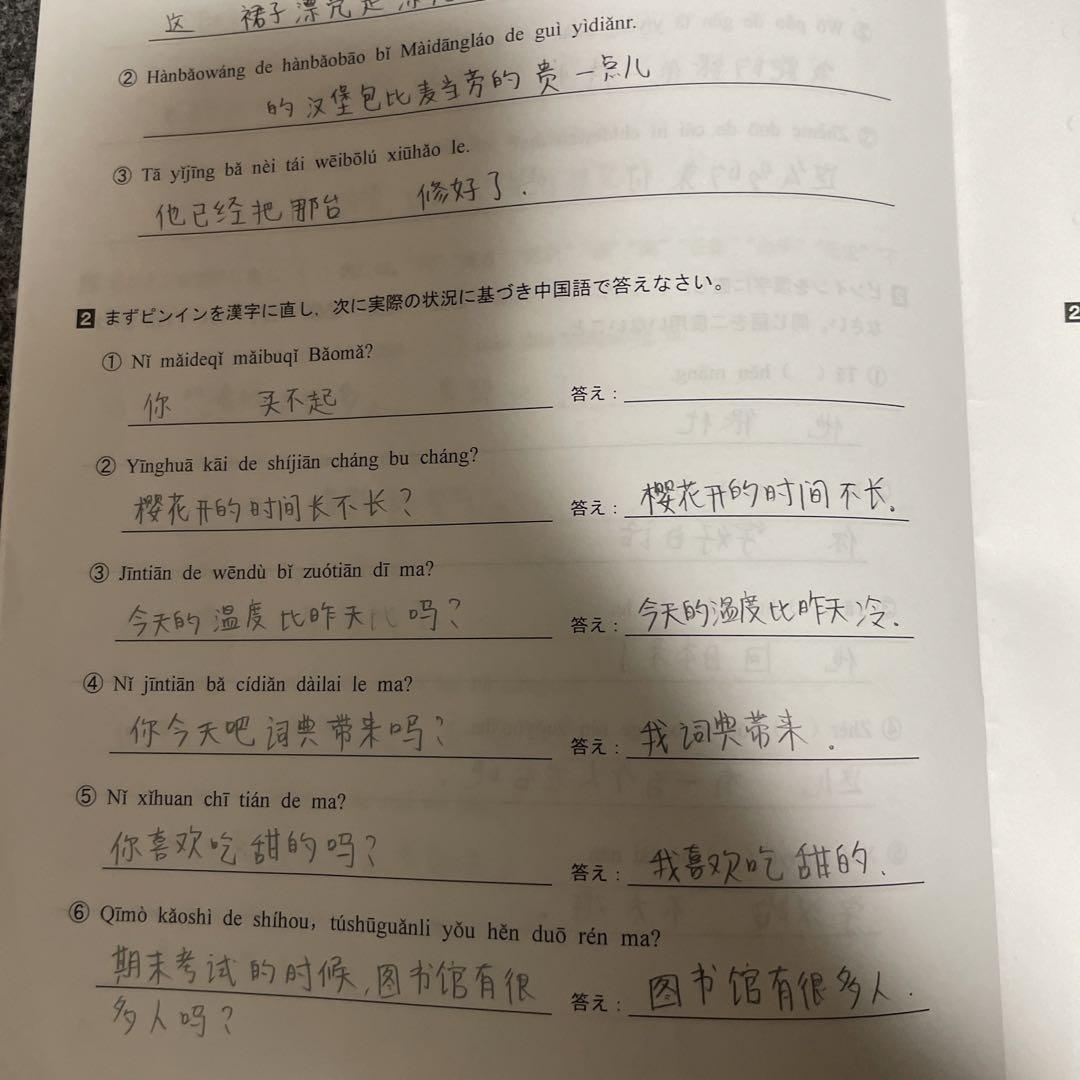 这 裙子漂亮是
② Hànbǎowáng de hànbǎobāo bǐ Màidāngláo de guì yìdiǎnr.
的 汉堡包比麦当劳的 贵 一点儿
③ Tā yǐjīng bǎ nèi tái wēibōlú xiūhǎo le.
他已经把那台 修好了.
2 まずピンインを漢字に直し,次に実際の状況に基づき中国語で答えなさい。
① Nǐ mǎideqǐ mǎibuqǐ Bǎomǎ?
你 买不起 答え:
② Yīnghuā kāi de shíjiān cháng bu cháng?
樱花开的时间长不长? 答え: 樱花开的时间不长.
③ Jīntiān de wēndù bǐ zuótiān dī ma?
今天的温度比昨天 吗? 答え: 今天的温度比昨天冷.
④ Nǐ jīntiān bǎ cídiǎn dàilai le ma?
你今天吧词典带来吗? 答え: 我词典带来.
⑤ Nǐ xǐhuan chī tián de ma?
你喜欢吃甜的吗? 答え: 我喜欢吃甜的.
⑥ Qīmò kǎoshì de shíhou, túshūguǎnli yǒu hěn duō rén ma?
期末考试的时候,图书馆有很 答え: 图书馆有很多人.
多人吗?
2